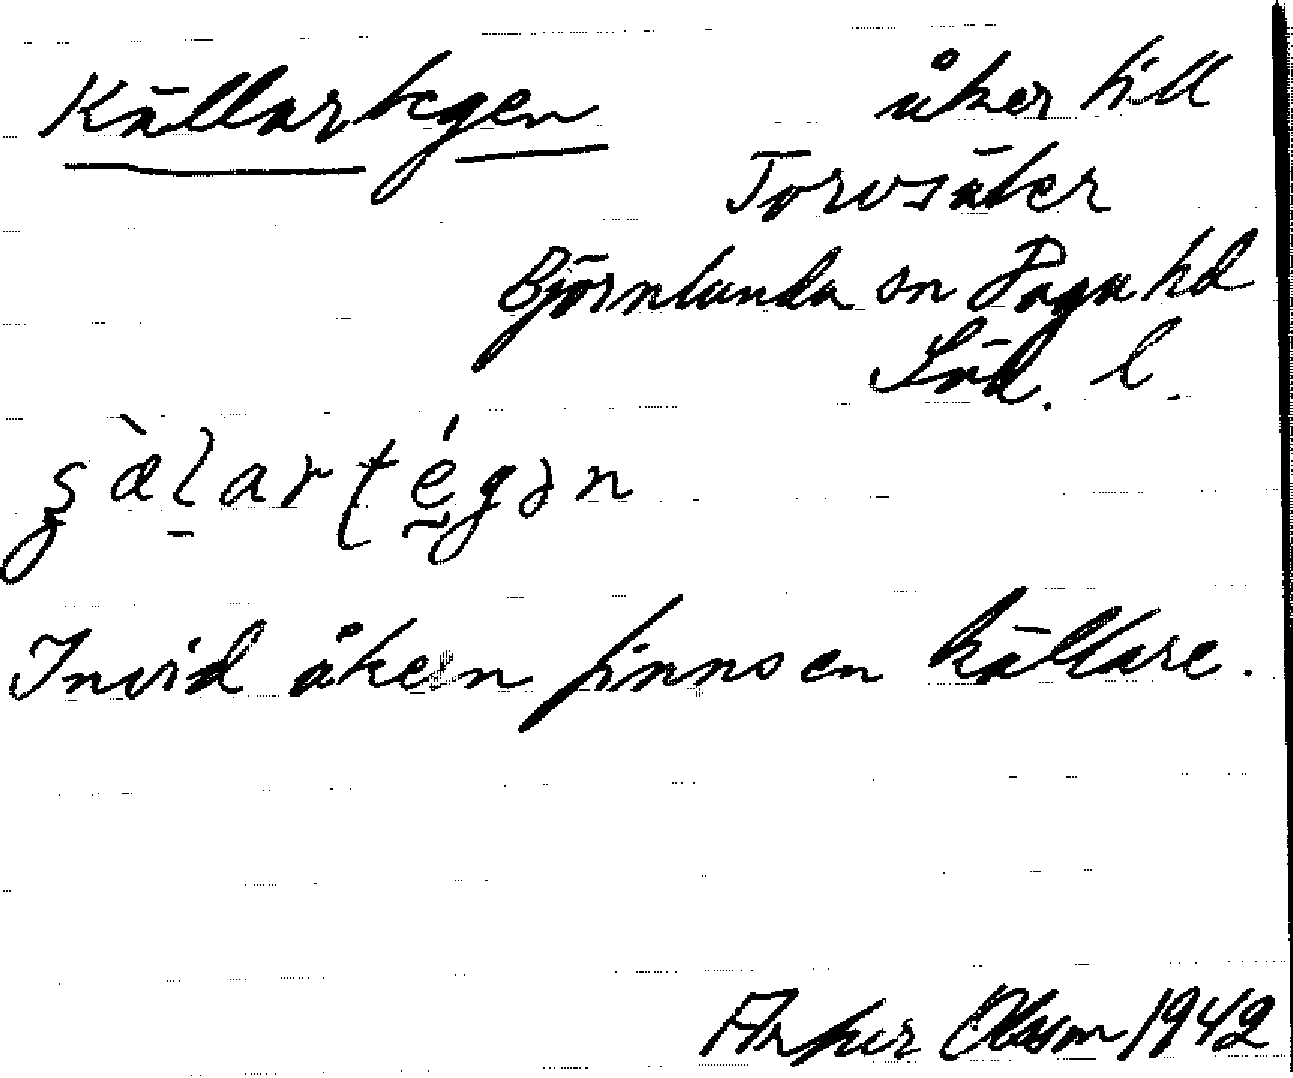 Källartegen åker till
Torvsäter
Björnlunda sn Daga hd
Söd. l.
Invid åkern finns en källare.
Olsson 1942